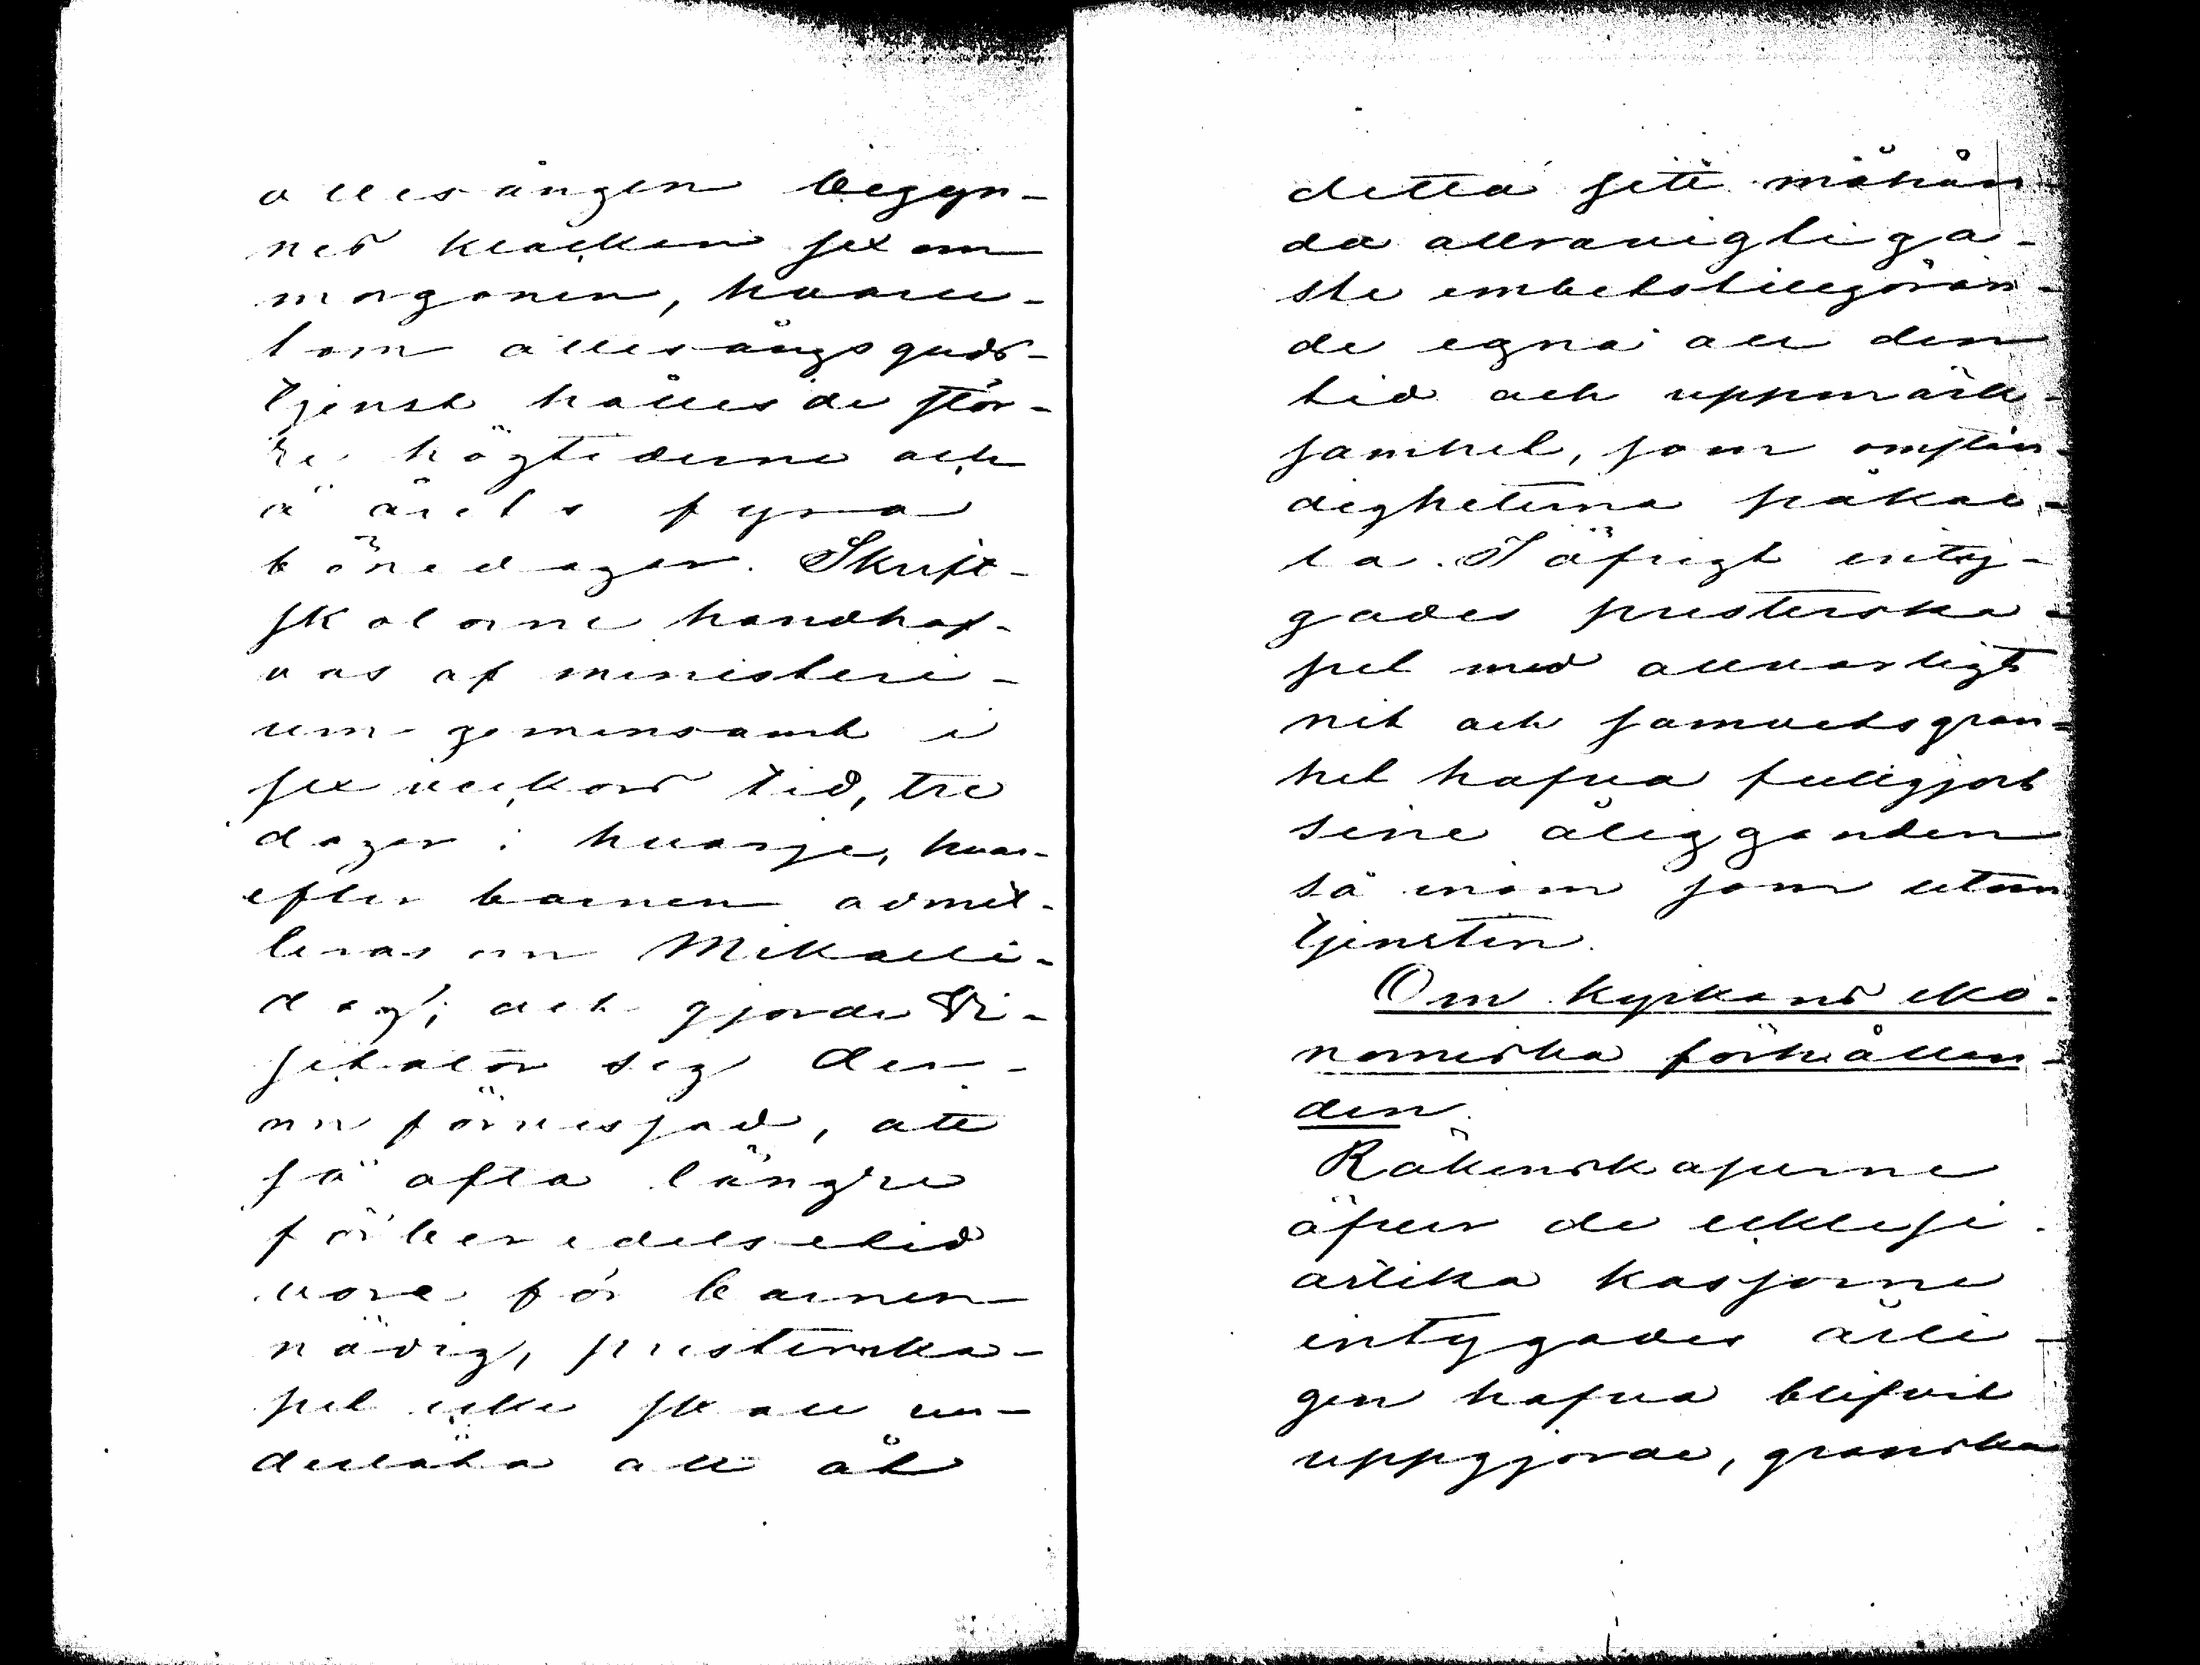 ottesången begyn-
nes klockan sex om
morgonen, hvaru-
tom ottesångsguds-
tjenst hålles de stör-
re högtiderne och
å årets fyra
bönedagar. Skrift-
skolorne handhaf-
vas af ministeri-
um gemensamt i
sex veckors tid, tre
dagar i hvarje, hvar-
efter barnen admit-
teras om Mikaeli-
dag; och gjorde Vi-
sitator sig der-
om förvissad, att
så ofta längre
förberedelsetid
vore för barnen
nödig, presterska-
pet icke skall un-
derlåta att åt
detta sitt måhän-
da allravigtiga-
ste embetsåliggöran-
de egna all den
tid och uppmärk-
samhet, som omstän-
digheterna påkal-
la. I öfrigt inty-
gades presterska-
pet med allvarligt
nit och samvetsgran-
het hafva fullgjort
sine åligganden
så inom som utom
tjensten.
Om kyrkans eko-
nomiska förhållan-
den.
Räkenskaperne
öfver de ecklesi-
astika kassorne
intygades årli-
gen hafva blifvit
uppgjorde, granska